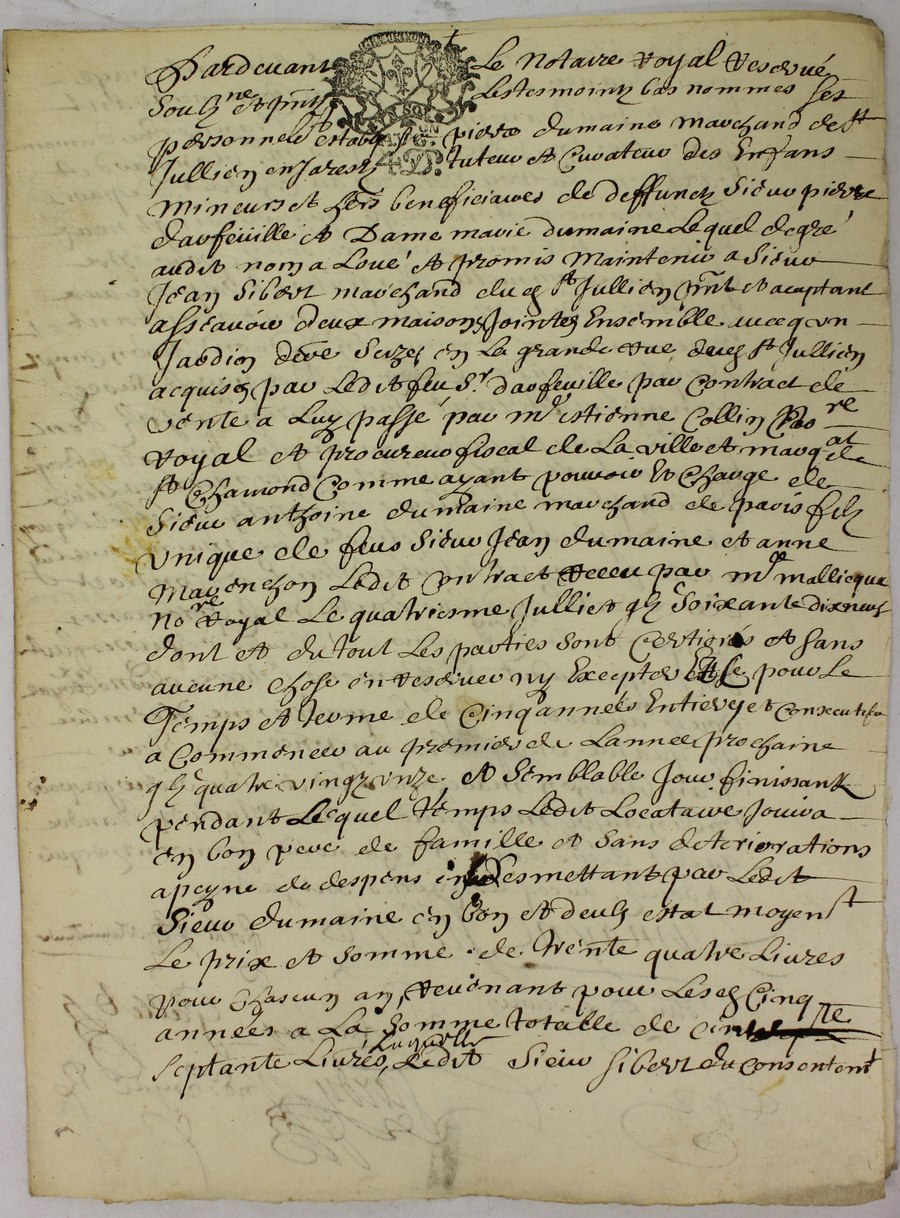 Pardevant Le Notaire Royal Reservé
Soubz.ne et pnts Les tesmointz bas nommes ses
personnelz establys Sr pierre dumaine marchand de St
Jullien en Jarestz tuteur et Curateur des Enfans
mineurs et hers beneficiaires de deffunctz Sieur pierre
darfeuille et Dame marie dumaine Lequel de gré
audit nom a Loué et promis maintenir a Sieur
Jean Sibert marchand dud St Jullien pnt et aceptant
assçavoir deux maisons Jointes Ensemble avecq un
Jardin derre Sizes en La grande rue dud St Jullien
acquises par Ledit feu Sr. darfeuille par Contract de
vente a Luy passé par me estienne Collin No re
Royal et procureur fiscal de La ville et marq at de
St Chamond Comme ayant pouvoir et Charge de
Sieur anthoine dumaine marchand de paris filz
unique de feus Sieur Jean dumaine et anne
Marenchon Ledit contract Receu par me mallicqua
Nore Royal Le quatriesme Julliet gbc Soixante dix neuf
dont et du tout Les parties sont Certiorés et sans
aucune chose en reserver ny Excepter Et Ce pour Le
Temps et terme de Cinq années Entieres et Consecutifves
a Commencer au premier de Lannee prochaine
gbc quatre vingz unze et Semblable Jour finissantz
pendant Lequel temps Ledit Locataire Jouira
en bon pere de famille et sans deteriorations
a peyne de despens en Les mettant par Ledit
Sieur dumaine en bon et deub estat moyent
Le prix et somme de trente quatre Livres
pour Chascun an, revenant pour Lesd Cinq
années a La Somme totalle de Cent
septante Livres, Laquelle Ledit Sieur Sibert du Consentent